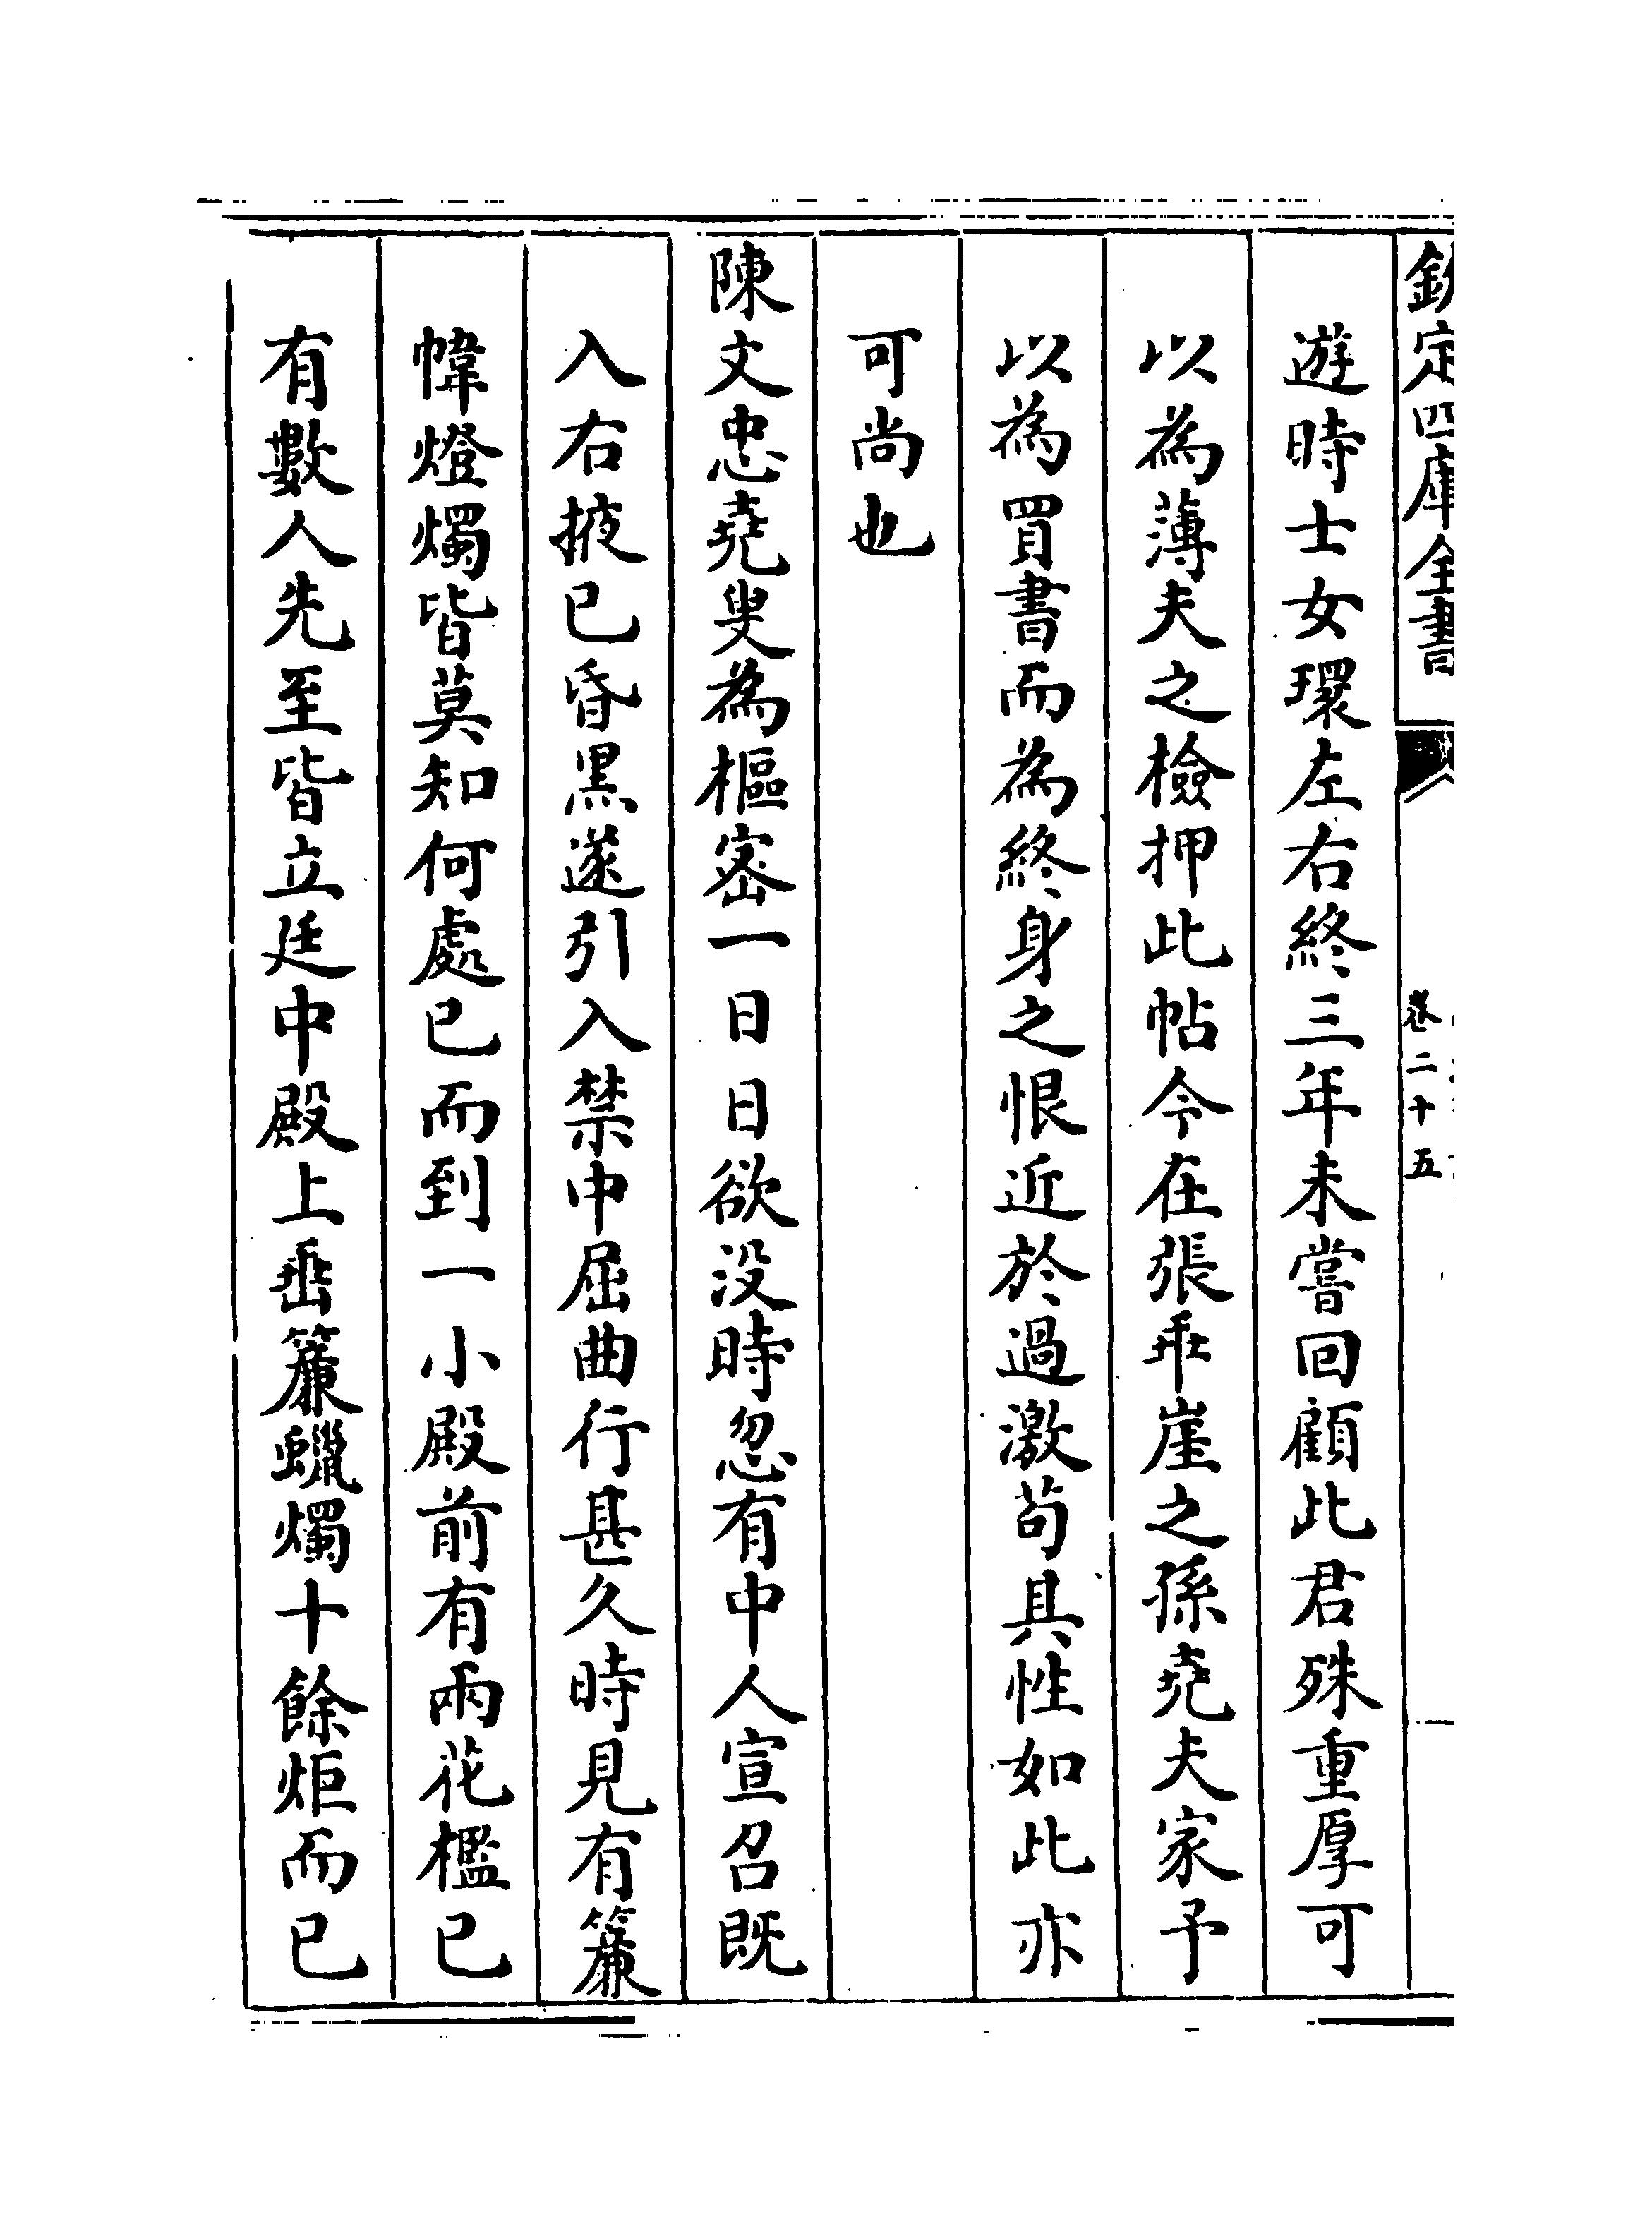 欽定四庫全書
卷二十五
遊時士女環左右終三年未嘗回顧此君殊重厚可
以為薄夫之檢押此帖今在張乖崖之孫堯夫家予
以為買書而為終身之恨近於過激苟具性如此亦
可尚也
陳文忠堯叟為樞密一日日欲没時忽有中人宣召既
入右掖已昏黑遂引入禁中屈曲行甚久時見有簾
幃燈燭皆莫知何處已而到一小殿前有兩花檻已
有數人先至皆立廷中殿上垂簾蠟燭十餘炬而已